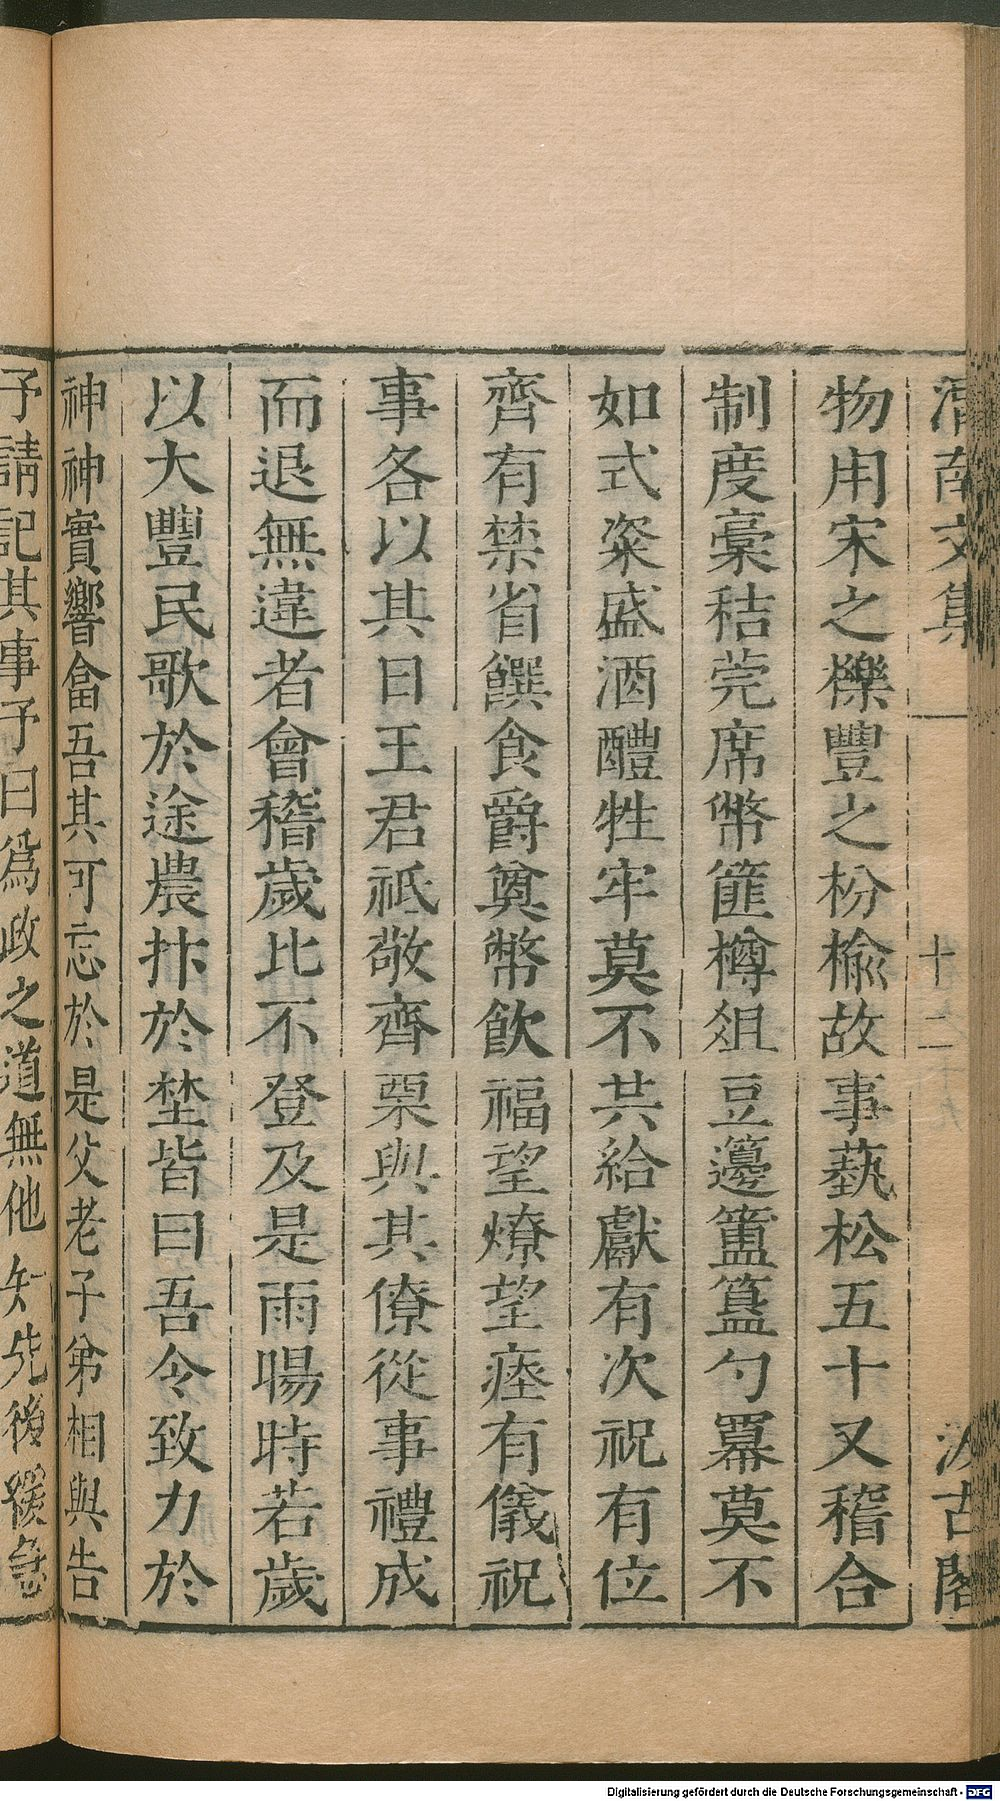 渭南文集
十二
汲古閣
物用宋之櫟豐之枌榆故事藝松五十又稽合
制度槀秸莞席幣篚樽俎豆籩簠簋勺羃莫不
如式粢盛酒醴牲牢莫不共給獻有次祝有位
齊有禁省饌食爵奠幣飲福望燎望瘞有儀祝
事各以其日王君祗敬齊栗與其僚從事禮成
而退無違者會稽歲比不登及是雨暘時若歲
以大豐民歌於途農抃於埜皆曰吾令致力於
神神實響畣吾其可忘於是父老子弟相與告
予請記其事予曰爲政之道無他知先後緩急
Digitalisierung gefördert durch die Deutsche Forschungsgemeinschaft - DFG